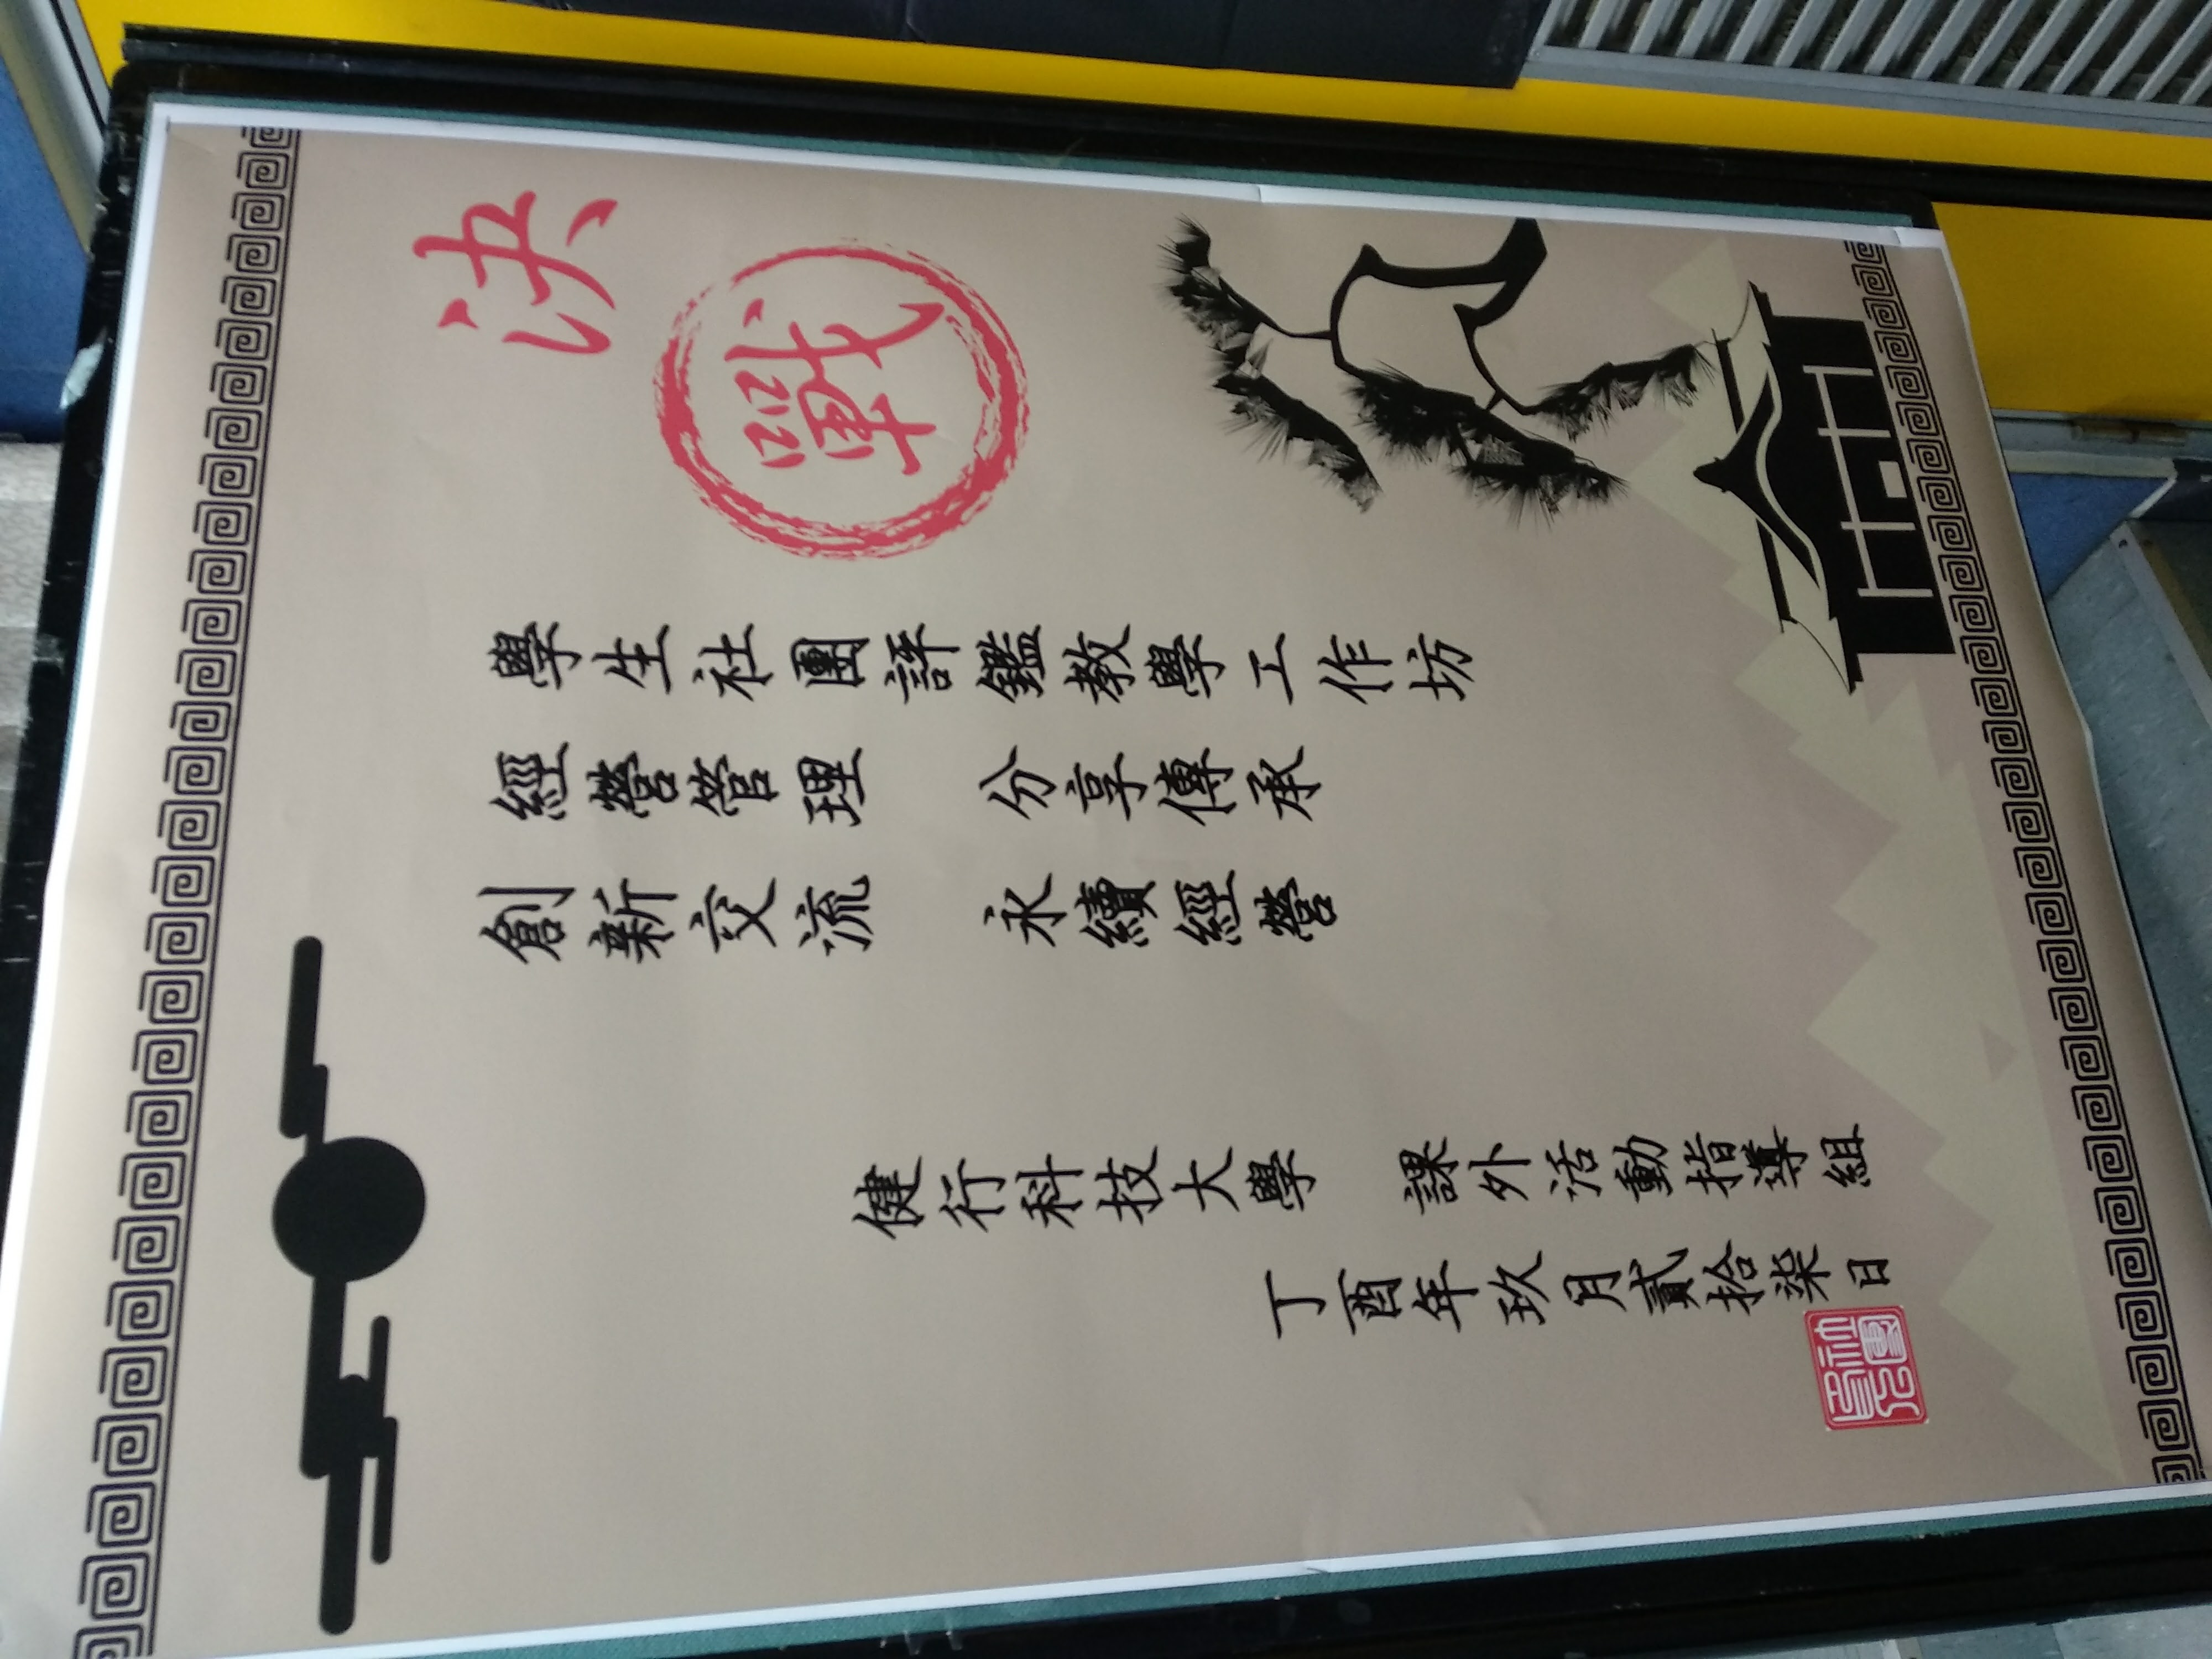 決戰
學生社團評鑑教學工作坊
經營管理 分享傳承
創新交流 永續經營
健行科技大學 課外活動指導組
丁酉年玖月貳拾柒日